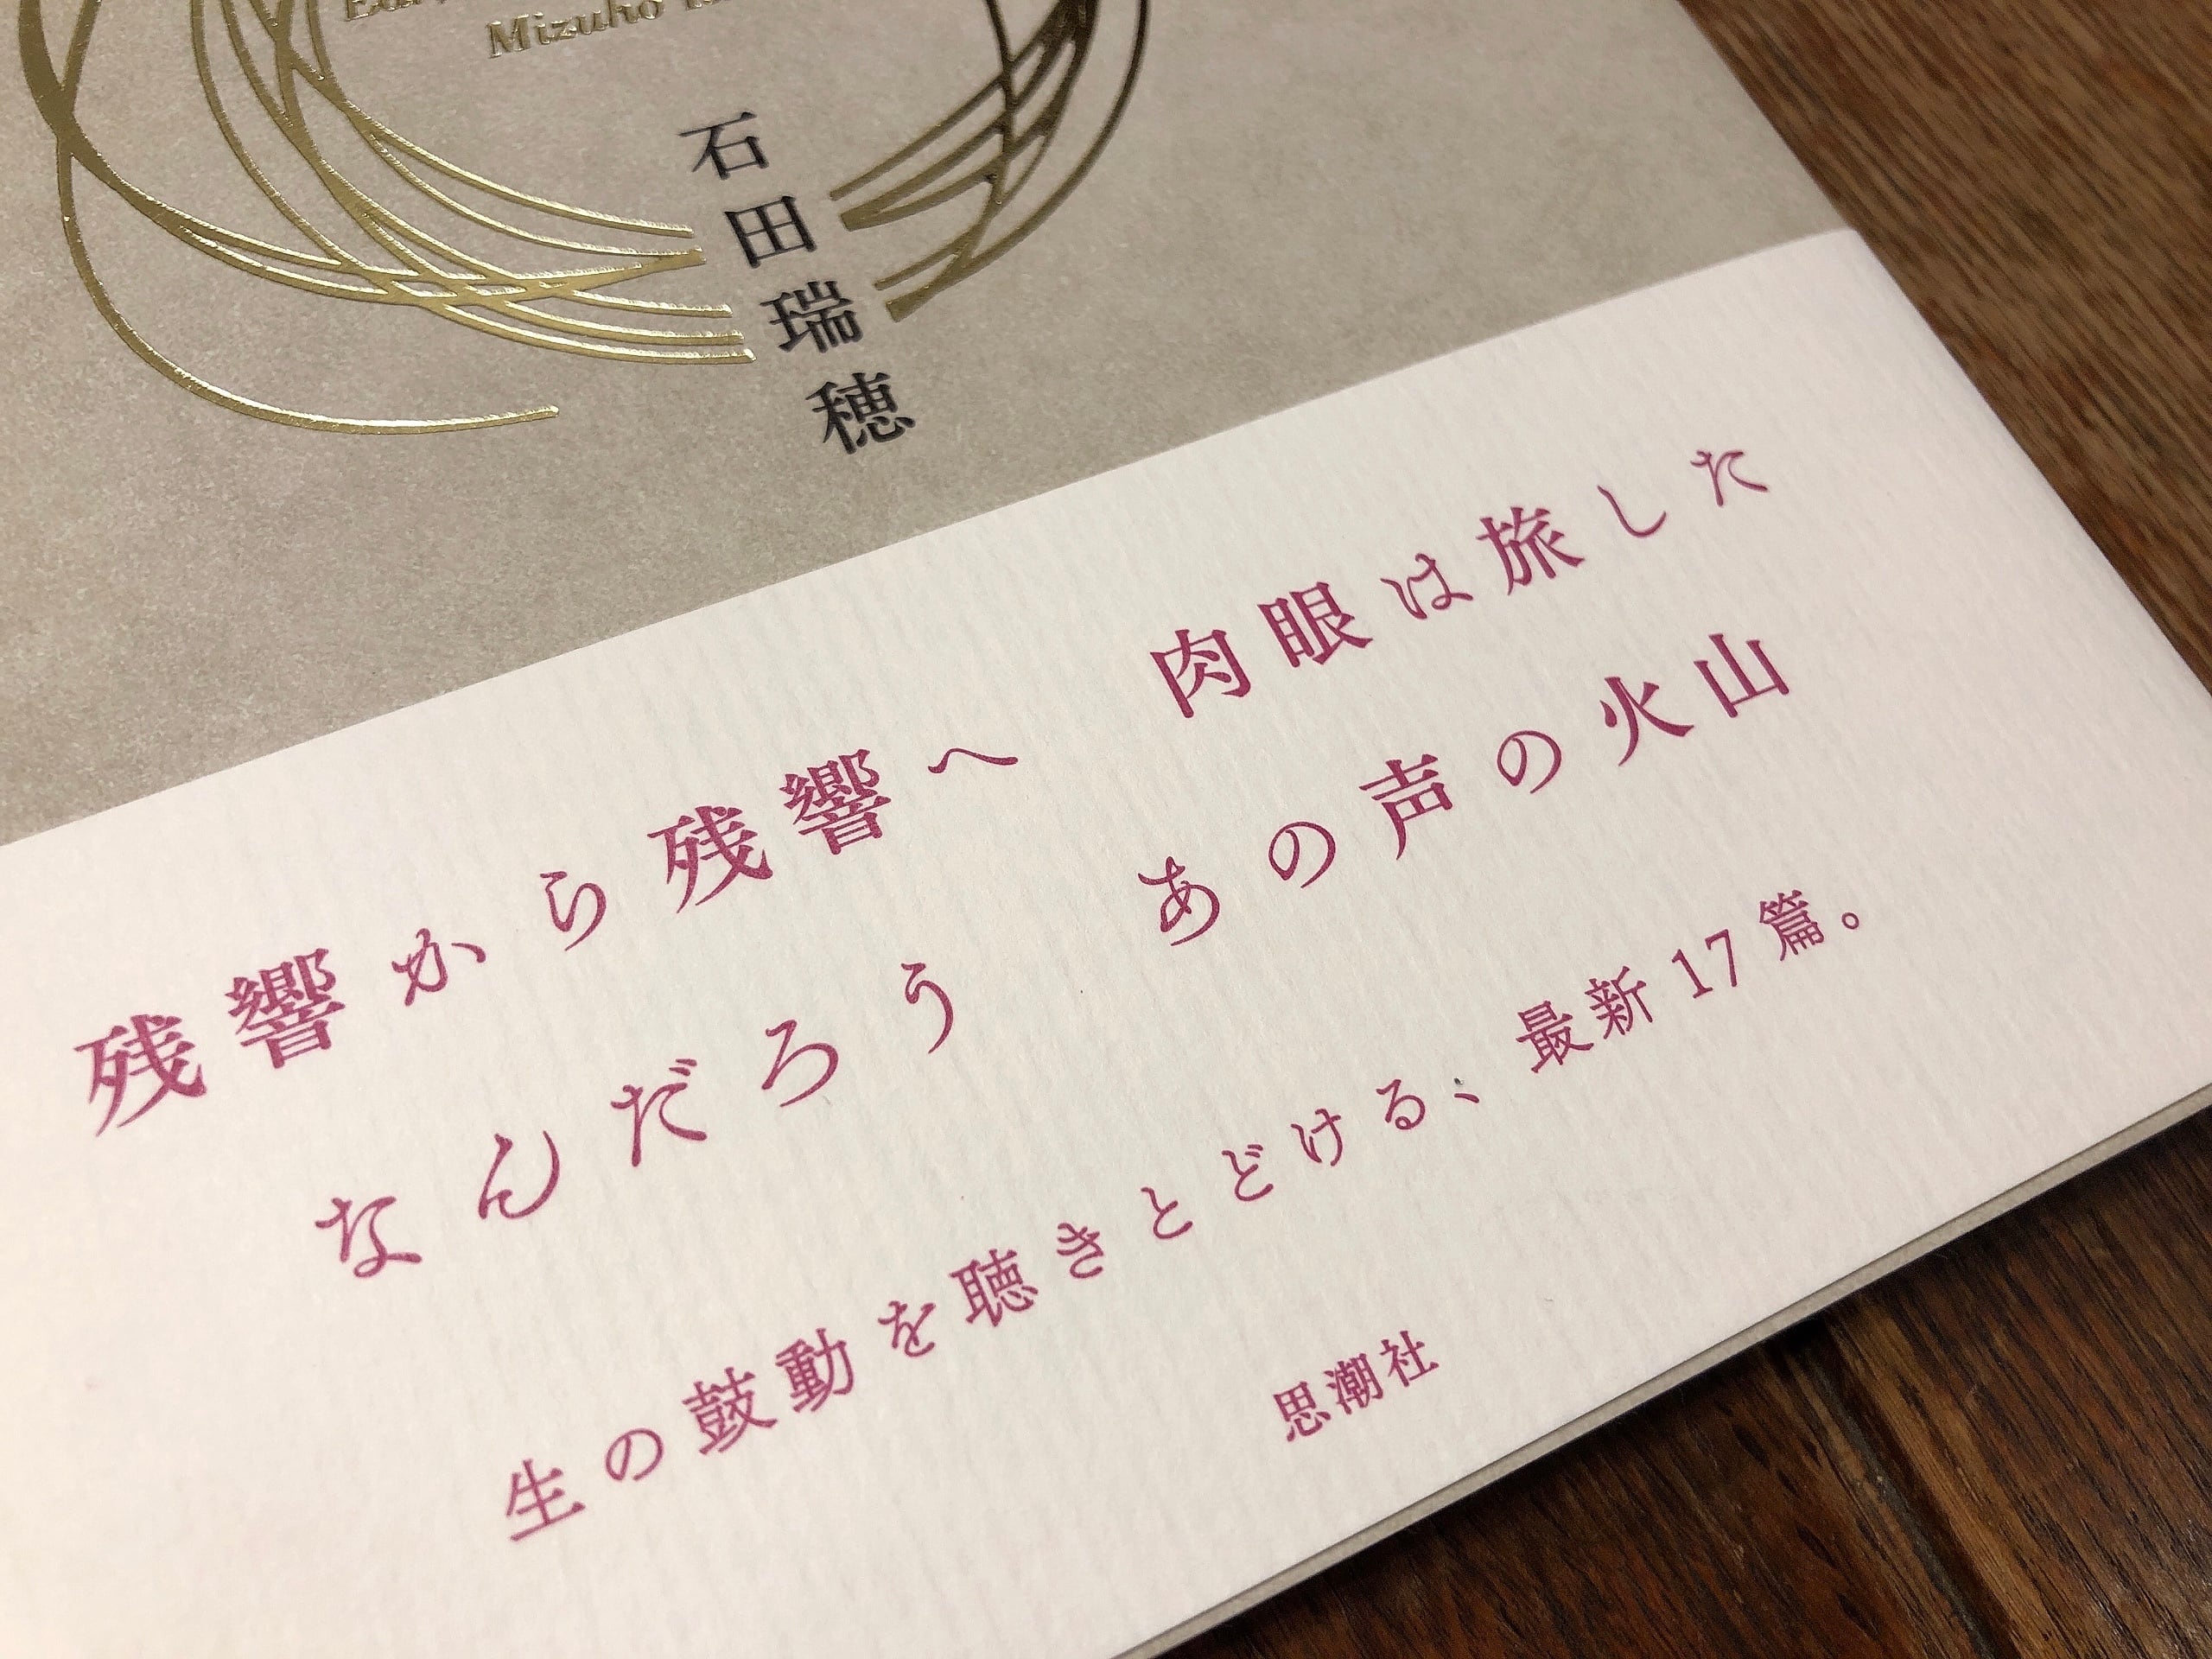 Mizuho
石田瑞穂
残響から残響へ 肉眼は旅した
なんだろう あの声の火山
生の鼓動を聴きとどける、最新17篇。
思潮社